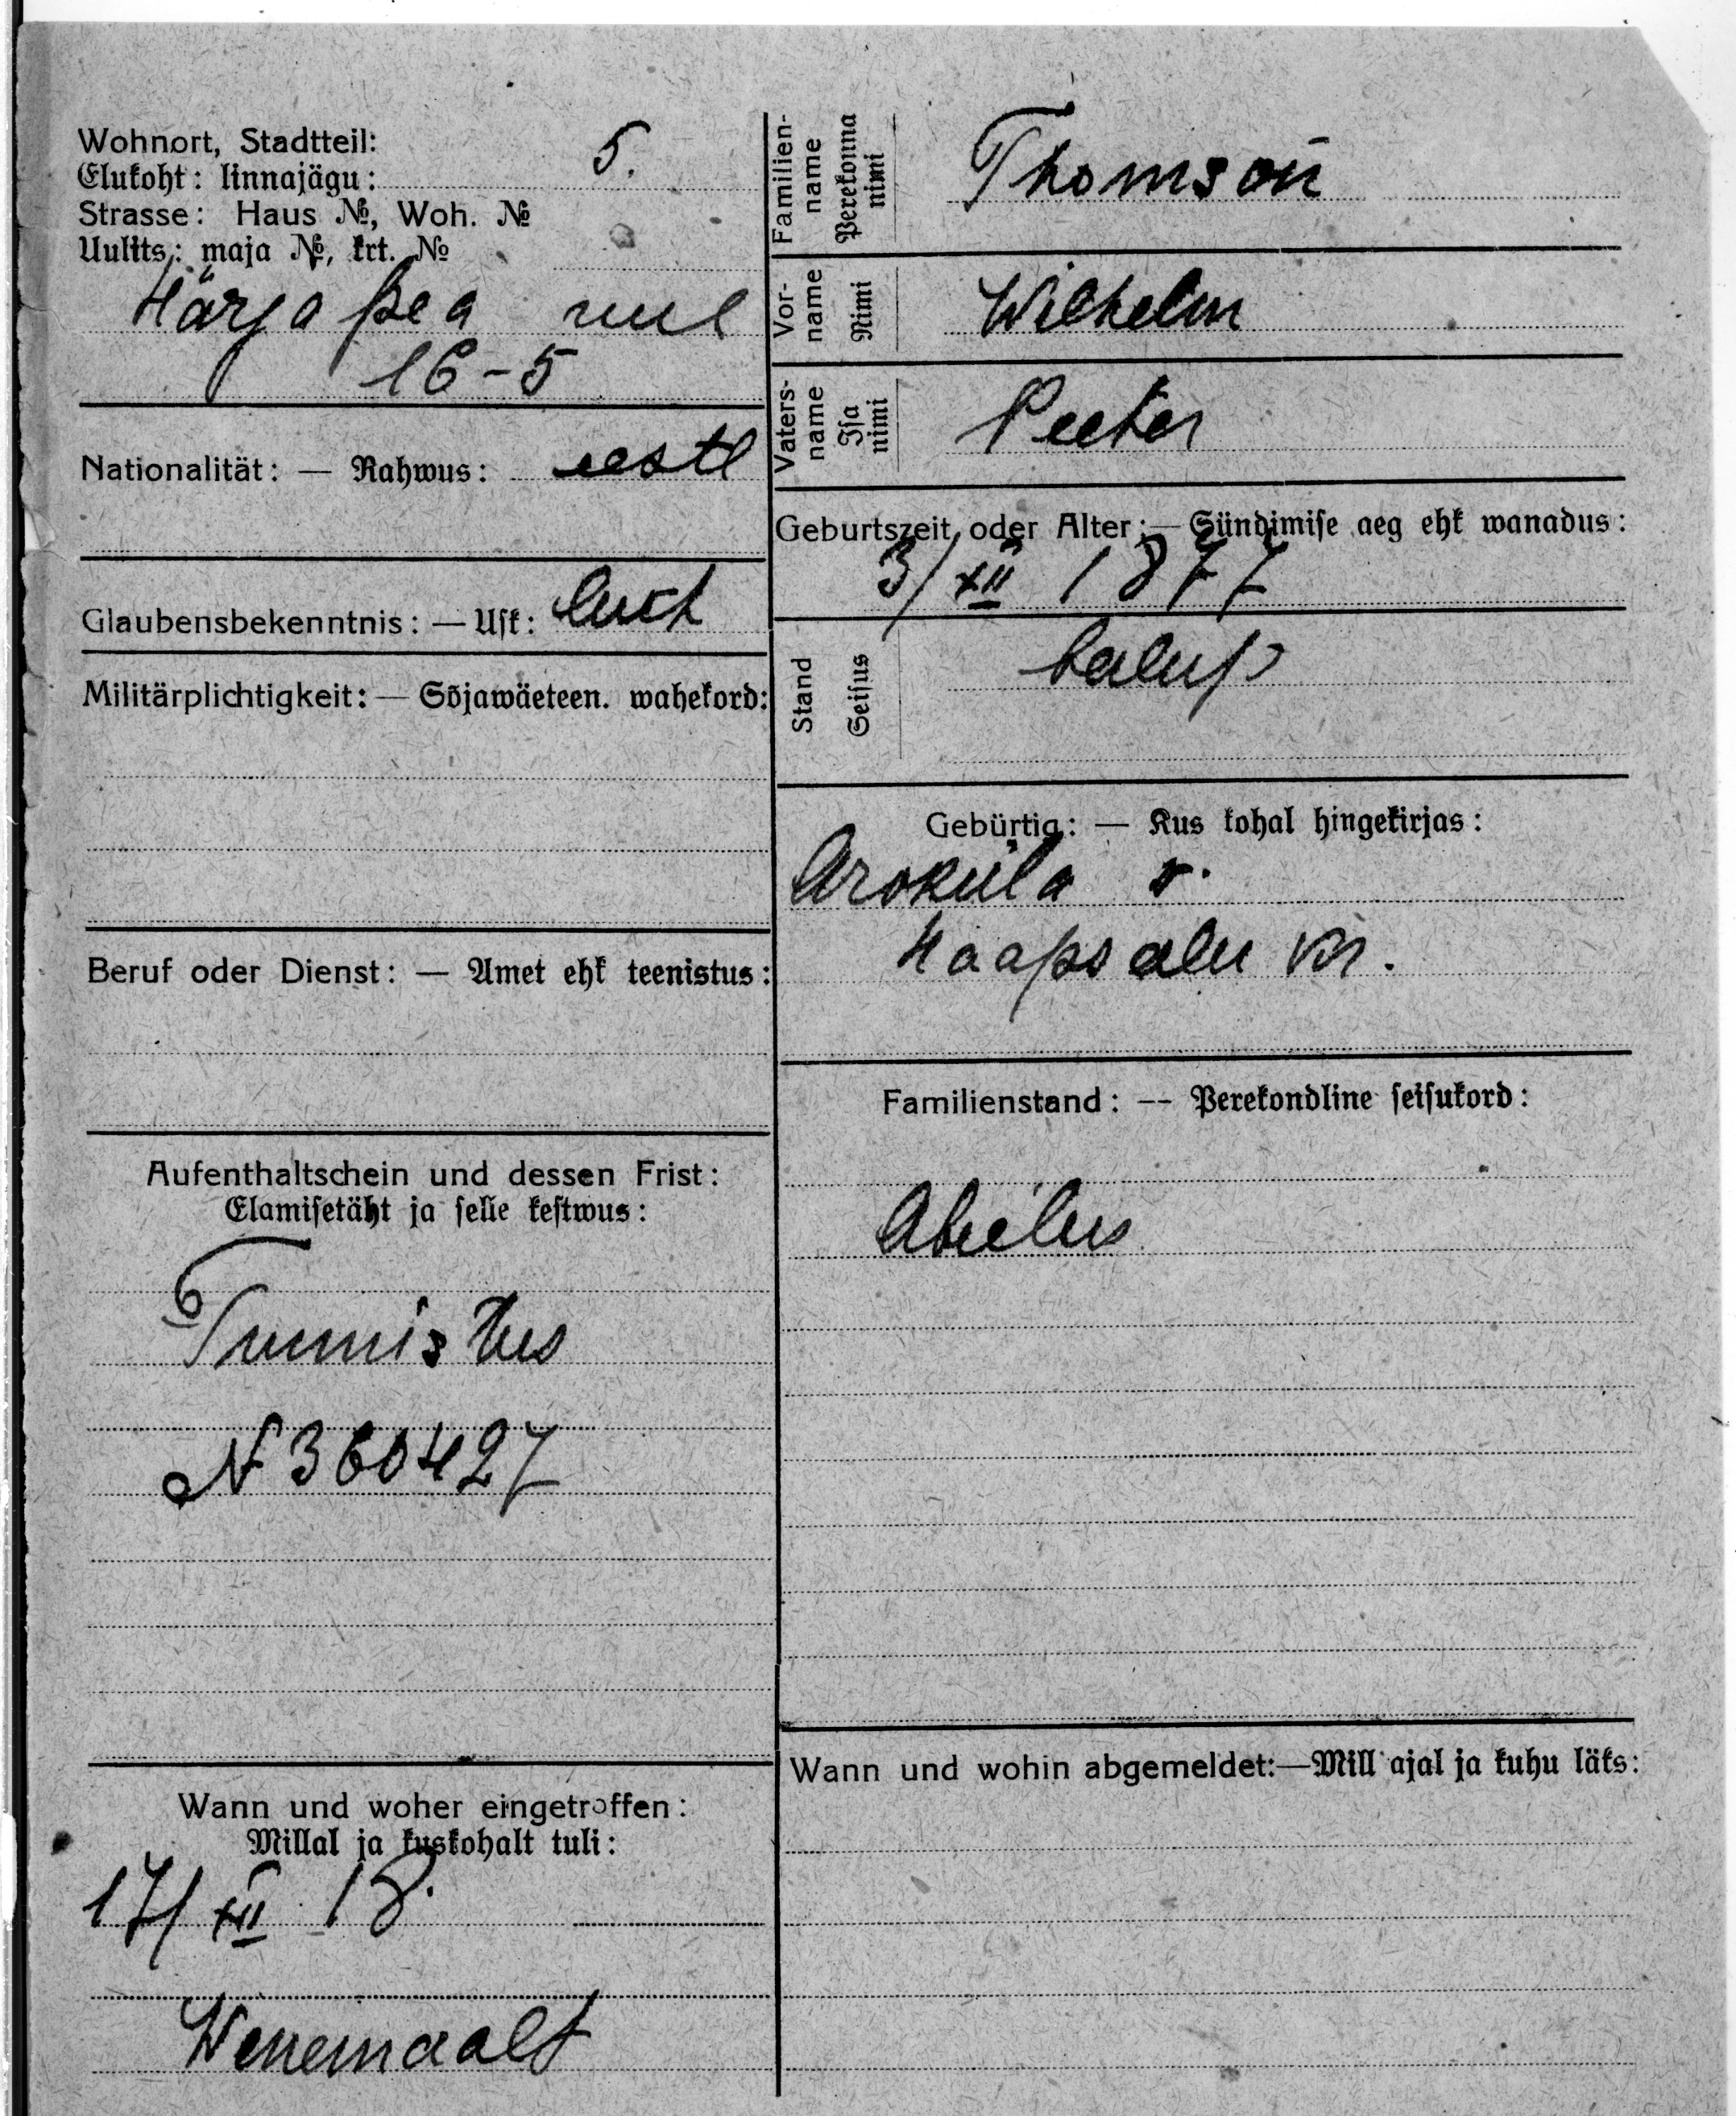 Wohnort, Stadtteil:
Elukoht: linnajägu: 5.
Strasse: Haus №, Woh. №
Uulits: maja №, krt. №
Härjapea uul
16-5
Nationalität: — Rahwus: eestl
Glaubensbekenntnis: — Usk: luth
Militärplichtigkeit: — Sõjawäeteen. wahekord:
Beruf oder Dienst: — Amet ehk teenistus:
Aufenthaltschein und dessen Frist:
Elamisetäht ja selle kestwus:
Tunnistus
N 360427
Wann und woher eingetroffen:
Millal ja kuskohalt tuli:
17/XII 18.
Wenemaalt
Familien-
name
Perekonna
nimi
Thomson
Vor-
name
Nimi
Wilhelm
Vaters-
name
Isa
nimi
Peeter
Geburtszeit oder Alter: — Sündimise aeg ehk wanadus:
3/XII 1877
Stand
Seisus
talup
Gebürtig: — Kus kohal hingekirjas:
Aroküla v.
Haapsalu kr.
Familienstand: — Perekondline seisukord:
Abielus
Wann und wohin abgemeldet: — Mill ajal ja kuhu läks: